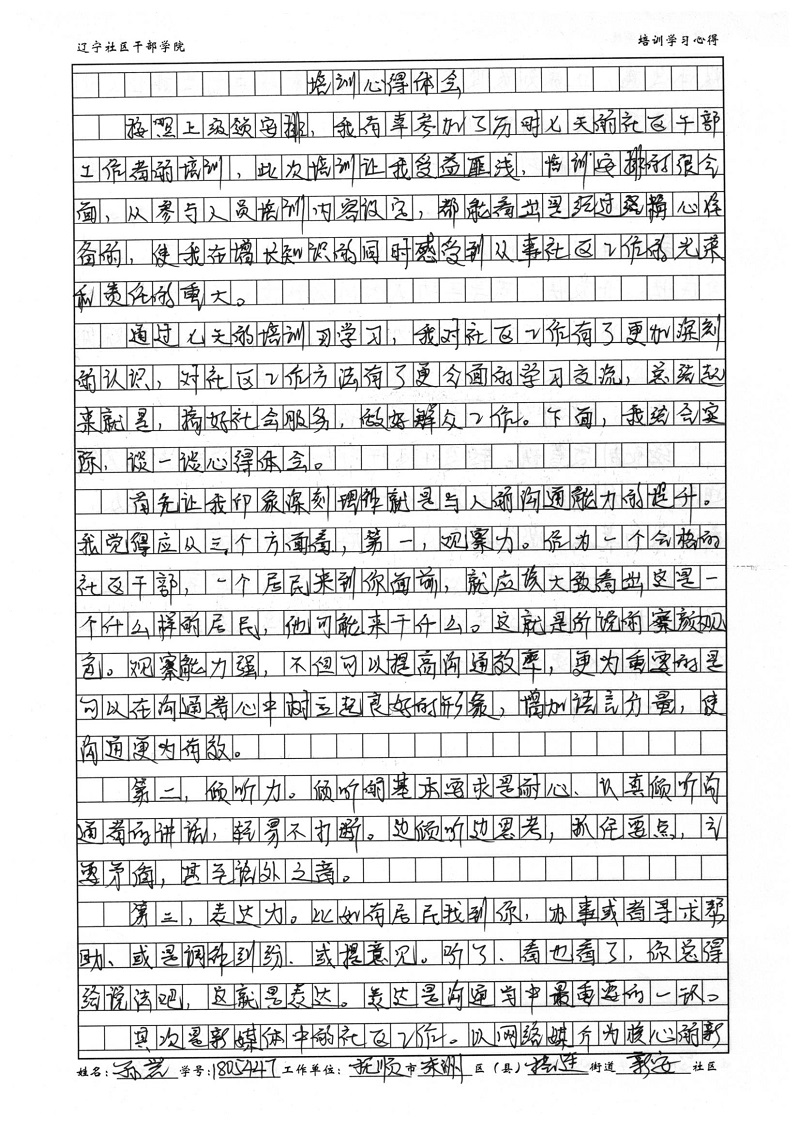 辽宁社区干部学院 培训学习心得
培训心得体会
按照上级领安排，我有幸参加了历时七天的社区干部
工作者的培训，此次培训让我受益匪浅，培训安排的很全
面，从参与人员培训内容设定，都能看出是经过精心准
备的，使我在增长知识的同时感受到从事社区工作的光荣
和责任的重大。
通过七天的培训习学习，我对社区工作有了更加深刻
的认识，对社区工作方法有了更全面的学习交流，总结起
来就是，搞好社会服务，做好群众工作。下面，我结合实
际，谈一谈心得体会。
首先让我印象深刻理解就是与人的沟通能力的提升。
我觉得应从三个方面看，第一，观察力。作为一个合格的
社区干部，一个居民来到你面前，就应该大致看出这是一
个什么样的居民，他可能来干什么。这就是所说的察颜观
色。观察能力强，不但可以提高沟通效率，更为重要的是
可以在沟通者心中树立起良好的形象，增加语言力量，使
沟通更为有效。
第二，倾听力。倾听的基本要求是耐心、认真倾听沟
通者的讲话，轻易不打断。边倾听边思考，抓住要点，主
要矛盾，甚至话外之音。
第三，表达力。比如有居民找到你，办事或者寻求帮
助、或是调解纠纷、或提意见。听了、看也看了，你总得
给说法吧，这就是表达。表达是沟通当中最重要的一识。
其次是新媒体中的社区工作。以网络媒介为核心的新
姓名： 学号：1805447 工作单位：抚顺市东洲区（县） 街道 新安社区